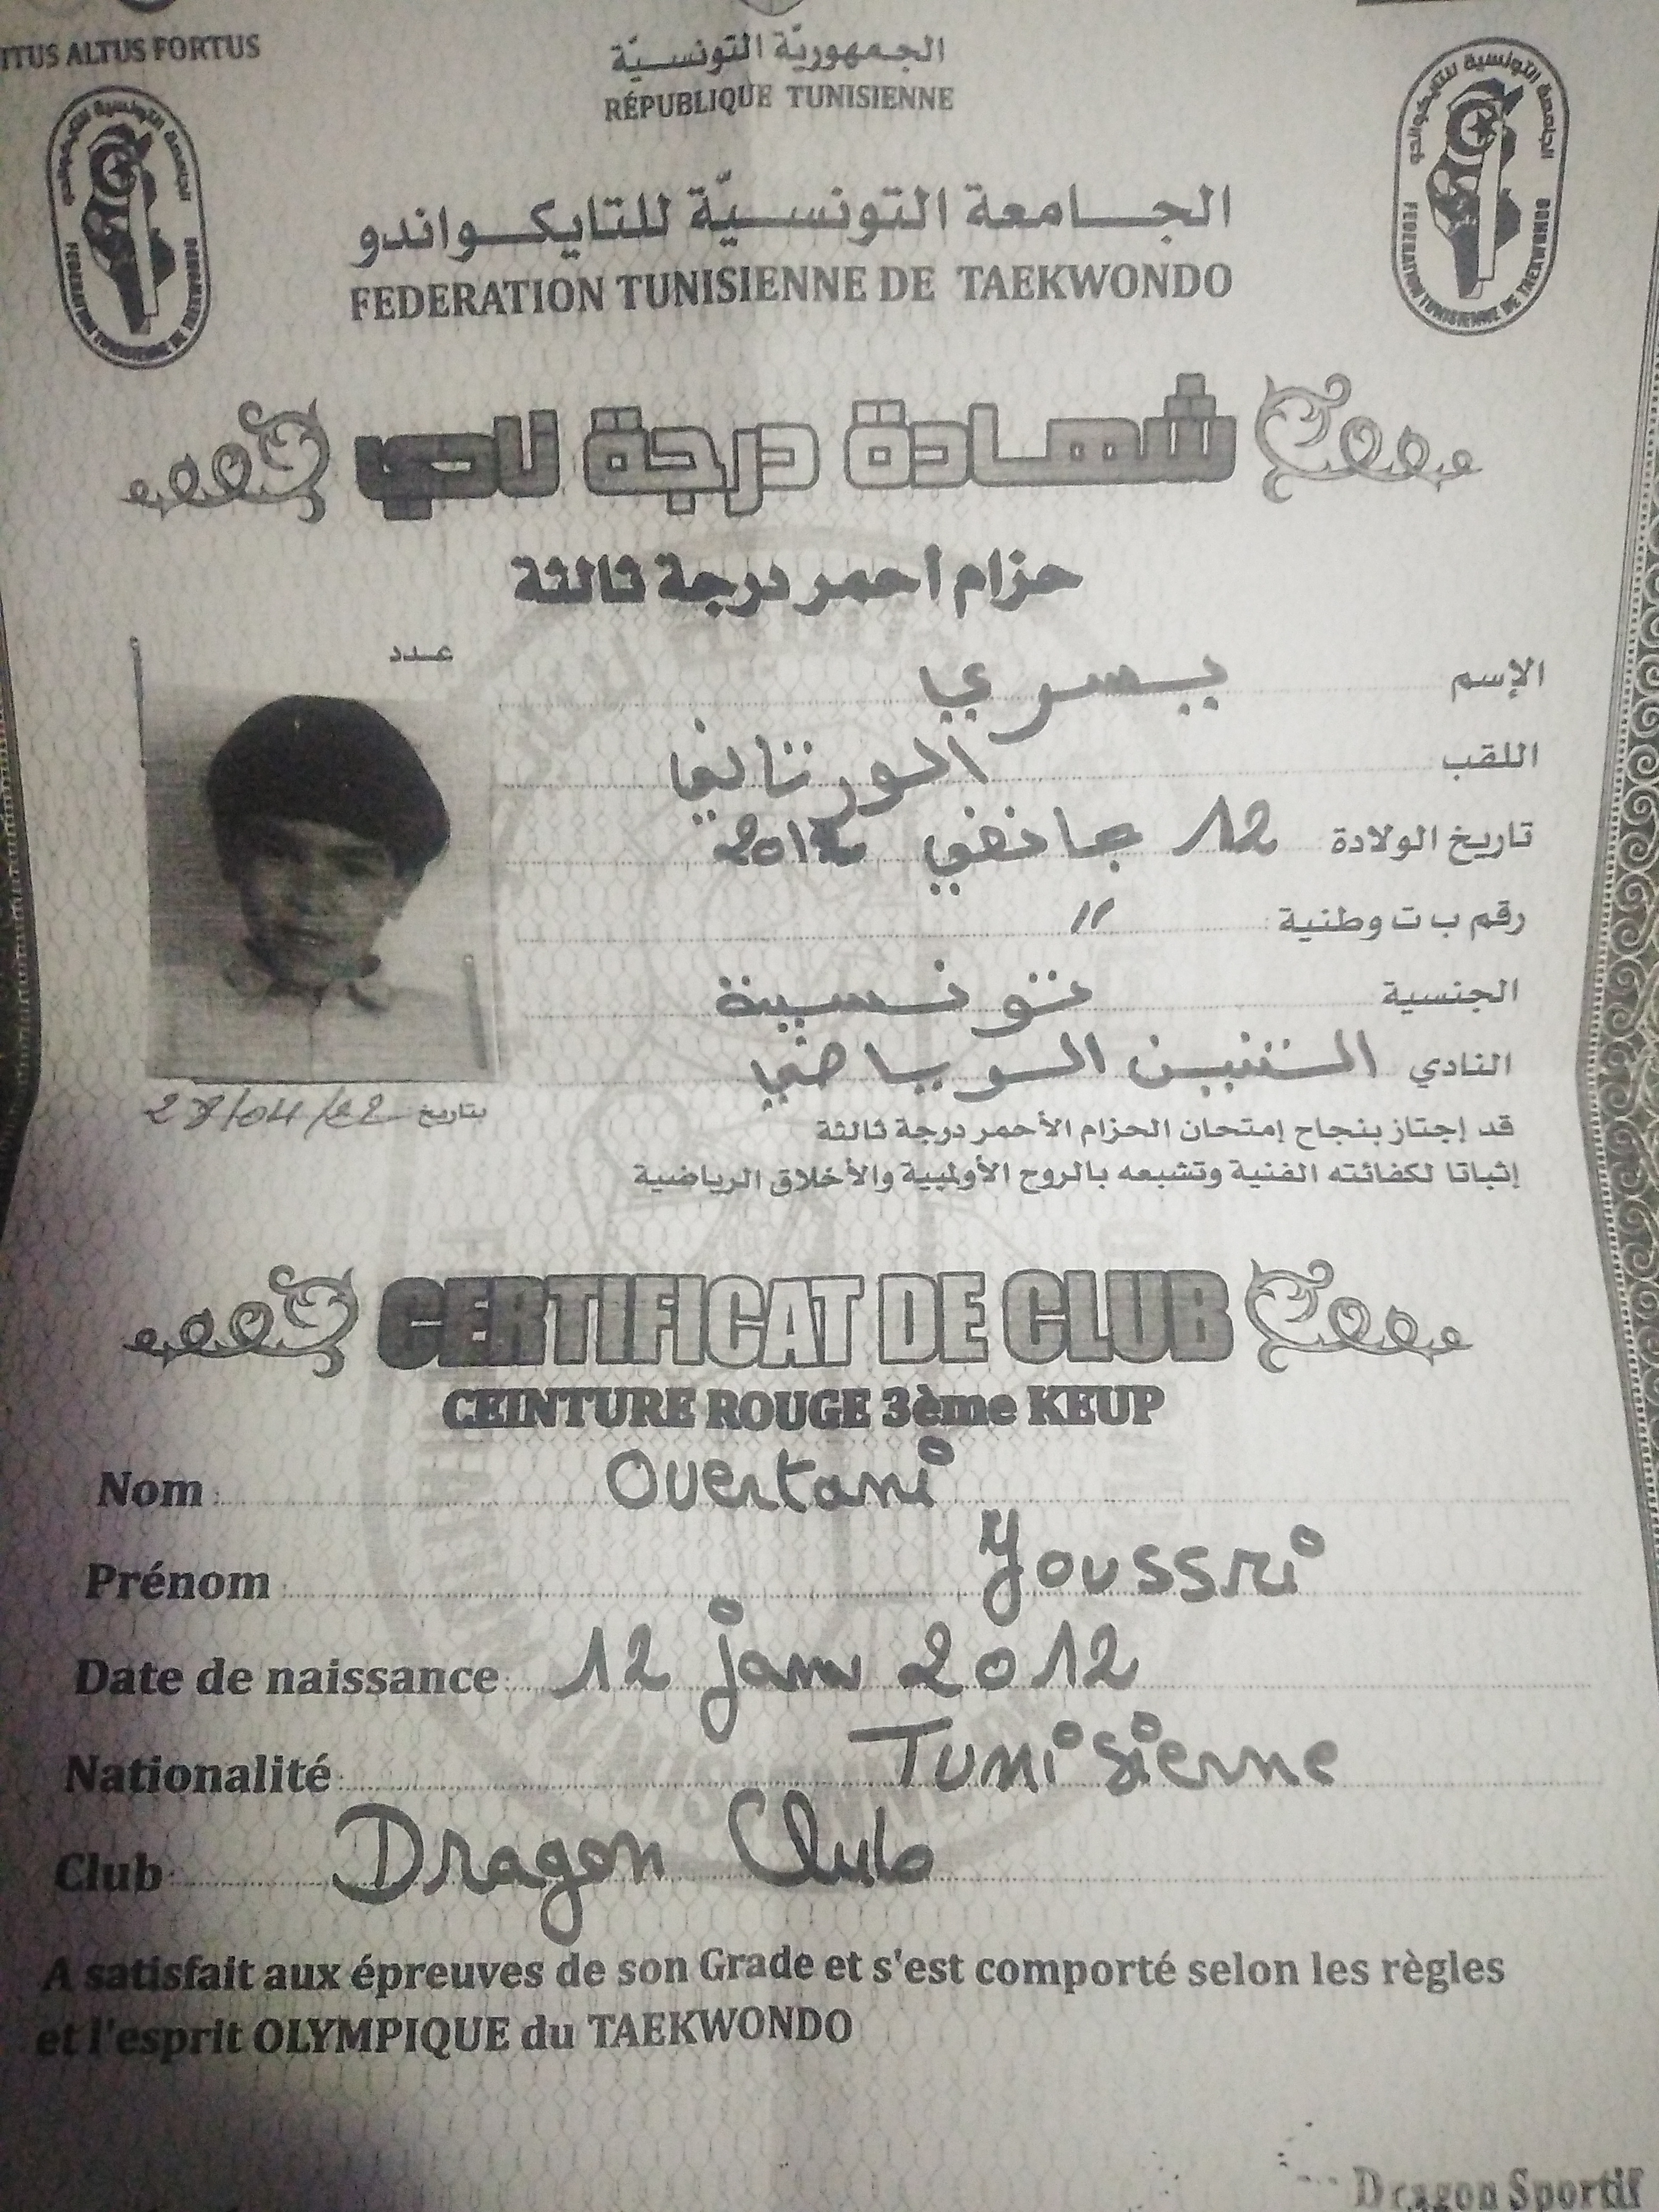 ITUS ALTUS FORTUS
الجمهوريّة التونسيّة
RÉPUBLIQUE TUNISIENNE
الجامعة التونسية للتايكواندو
FEDERATION TUNISIENNE DE TAEKWONDO
الجامعة التونسيّة للتايكواندو
FEDERATION TUNISIENNE DE TAEKWONDO
الجامعة التونسية للتايكواندو
FEDERATION TUNISIENNE DE TAEKWONDO
شهادة درجة نادي
حزام أحمر درجة ثالثة
عدد
الإسم يسري
اللقب الورتاني
تاريخ الولادة 12 جانفي 2012
رقم ب ت وطنية "
الجنسية تونسية
النادي التنين الرياضي
بتاريخ 27/04/22
قد إجتاز بنجاح إمتحان الحزام الأحمر درجة ثالثة
إثباتا لكفائته الفنية وتشبعه بالروح الأولمبية والأخلاق الرياضية
CERTIFICAT DE CLUB
CEINTURE ROUGE 3ème KEUP
Nom : Ouertani
Prénom : Youssri
Date de naissance : 12 janv 2012
Nationalité : Tunisienne
Club : Dragon Club
A satisfait aux épreuves de son Grade et s'est comporté selon les règles
et l'esprit OLYMPIQUE du TAEKWONDO
Dragon Sportif